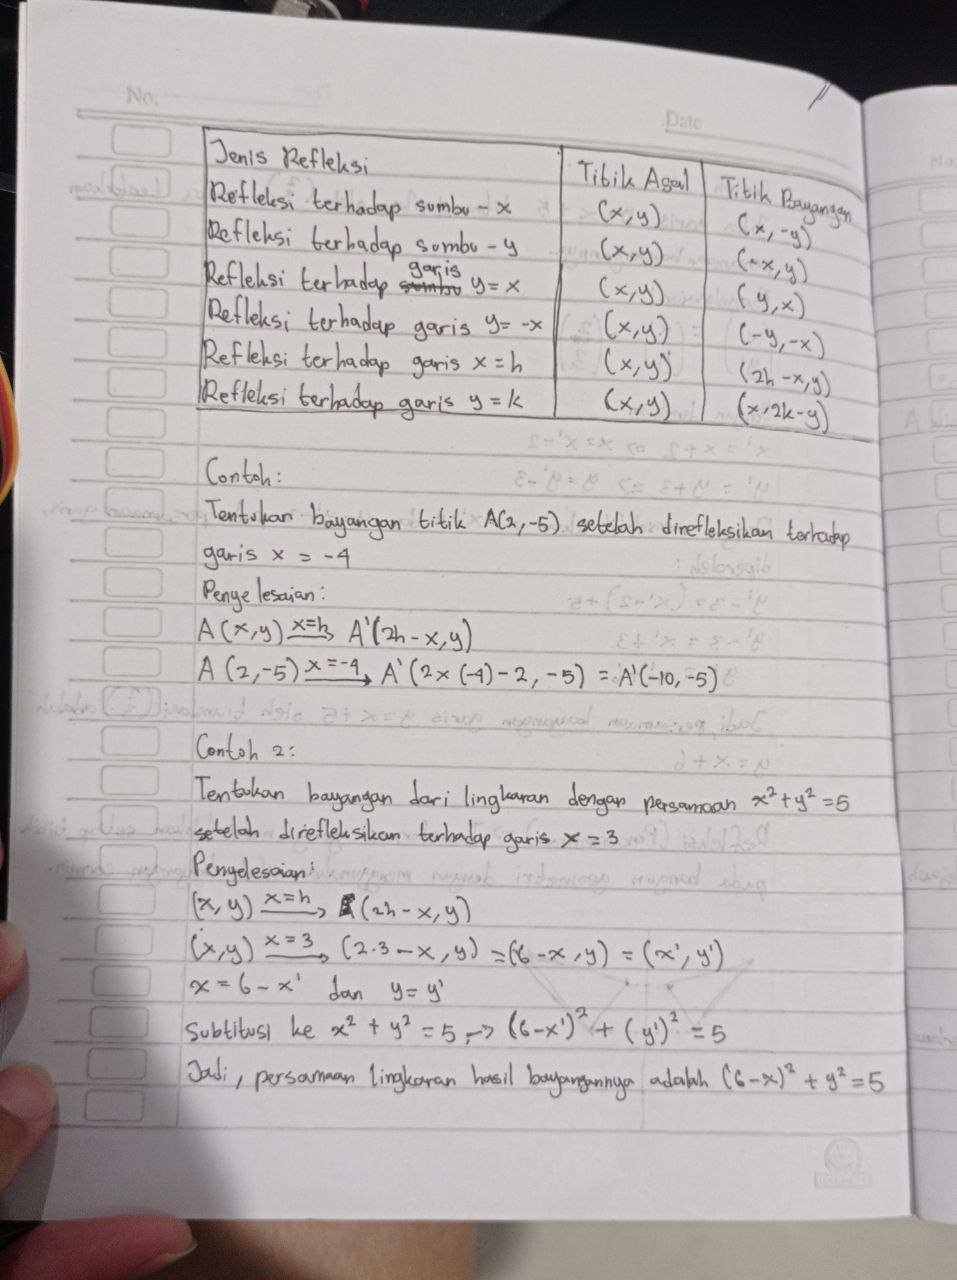 No.
Date
Jenis Refleksi Titik Asal Titik Bayangan
Refleksi terhadap sumbu - x (x,y) (x,-y)
Refleksi terhadap sumbu - y (x,y) (-x,y)
Refleksi terhadap sumbu garis y = x (x,y) (y,x)
Refleksi terhadap garis y = -x (x,y) (-y,-x)
Refleksi terhadap garis x = h (x,y) (2h-x,y)
Refleksi terhadap garis y = k (x,y) (x,2k-y)
Contoh:
Tentukan bayangan titik A(2,-5) setelah direfleksikan terhadap
garis x = -4
Penyelesaian:
A(x,y) x=h→ A'(2h-x,y)
A(2,-5) x=-4→ A'(2x(-4)-2, -5) = A'(-10,-5)
Contoh 2:
Tentukan bayangan dari lingkaran dengan persamaan x²+y²=5
setelah direfleksikan terhadap garis x = 3
Penyelesaian:
(x,y) x=h→ (2h-x,y)
(x,y) x=3→ (2.3-x,y) = (6-x,y) = (x',y')
x = 6-x' dan y = y'
Subtitusi ke x² + y² = 5 → (6-x')² + (y')² = 5
Jadi, persamaan lingkaran hasil bayangannya adalah (6-x)² + y² = 5